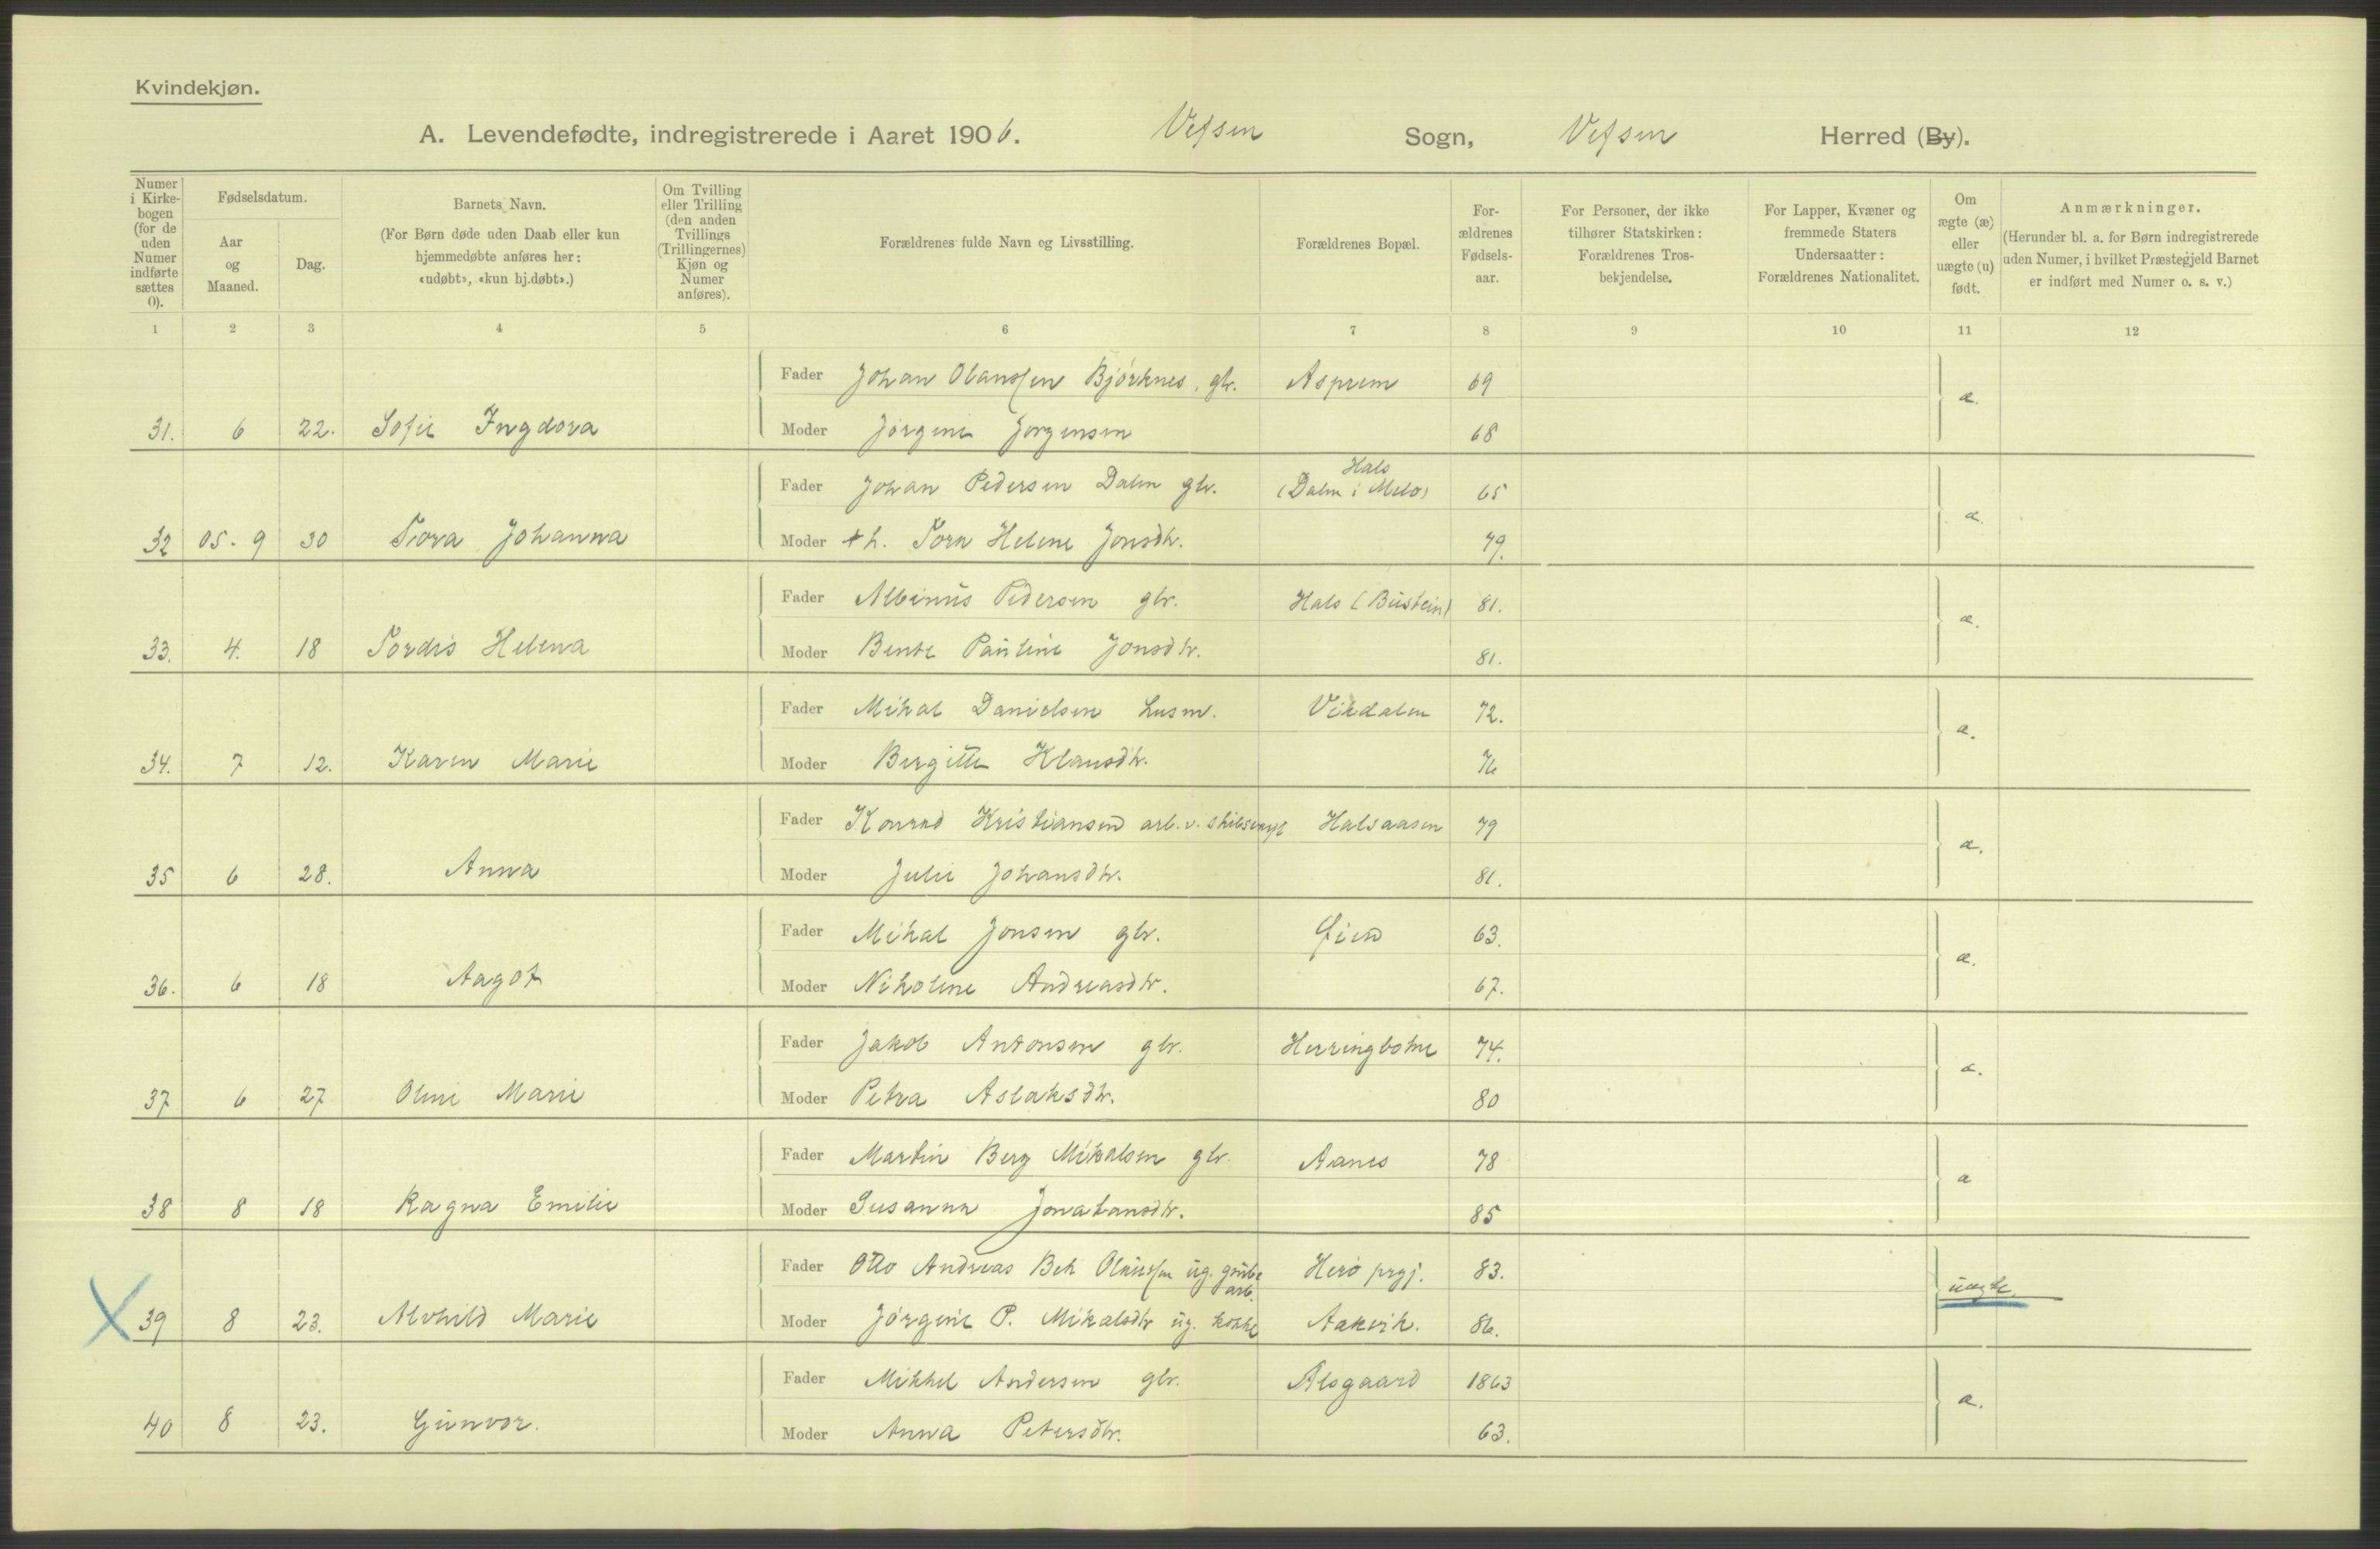 Kvindekjøn.
A. Levendefødte, indregistrerede i Aaret 1906. Vefsen Sogn, Vefsen Herred (By).
Numer i Kirkebogen (for de uden Numer indførte sættes 0).
Fødselsdatum.
Aar og Maaned.
Dag.
Barnets Navn.
(For Børn døde uden Daab eller kun hjemmedøbte anføres her: «udøbt», «kun hj.døbt».)
Om Tvilling eller Trilling (den anden Tvillings (Trillingernes) Kjøn og Numer anføres).
Forældrenes fulde Navn og Livsstilling.
Forældrenes Bopæl.
Forældrenes Fødselsaar.
For Personer, der ikke tilhører Statskirken: Forældrenes Trosbekjendelse.
For Lapper, Kvæner og fremmede Staters Undersaatter: Forældrenes Nationalitet.
Om ægte (æ) eller uægte (u) født.
Anmærkninger.
(Herunder bl. a. for Børn indregistrerede uden Numer, i hvilket Præstegjeld Barnet er indført med Numer o. s. v.)
1 2 3 4 5 6 7 8 9 10 11 12
Fader Johan Olaussen Bjørknes, gbr. Asprem 69 æ.
31. 6 22. Sofie Ingdora Moder Jørgine Jørgensen 68
Hals
Fader Johan Pedersen Dalen gbr. (Dalen i Melø) 65 æ.
32 05-9 30 Tora Johanna Moder + h. Tora Helene Jonsdtr. 79.
Fader Albinus Pedersen gbr. Hals (Bustein) 81. æ.
33. 4. 18 Tordis Helena Moder Bente Pauline Jonsdtr. 81.
Fader Mikal Danielsen husm. Vikdalen 72. æ.
34. 7 12. Karen Marie Moder Bergitte Klausdtr. 76
Fader Konrad Kristiansen arb. v. Halsaasen 79 æ.
35 6 28. Anna Moder Julie Johansdtr. 81.
Fader Mikal Jonsen gbr. Øien 63. æ.
36. 6 18 Aagot Moder Nikoline Andreasdtr. 67.
Fader Jakob Antonsen gbr. Herringbotne 74. æ.
37 6 27 Oline Marie Moder Petra Aslaksdtr. 80
Fader Martin Berg Mikalsen gbr. Aanes 78 æ
38 8 18 Ragna Emilie Moder Susanna Jonatansdtr. 85
Fader Otto Andreas Bek Olaussen ug. grube arb. Herø prgj. 83. uægte.
39 8 23. Alvhild Marie Moder Jørgine P. Mikalsdtr ug. kokke Aakvik. 86.
Fader Mikkel Andersen gbr. Alsgaard 1863 æ.
40 8 23. Gunvor. Moder Anna Petersdtr. 63.